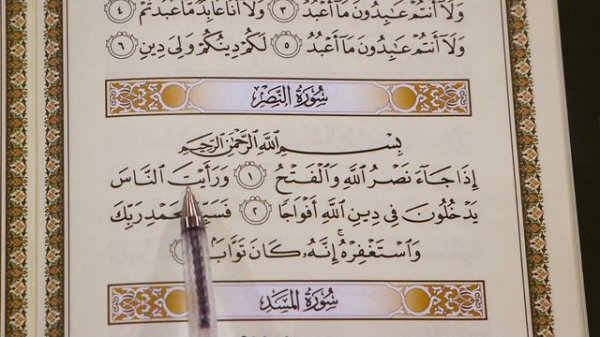 وَلَآ أَنتُمْ عَٰبِدُونَ مَآ أَعْبُدُ ٣ وَلَآ أَنَا۠ عَابِدٌ مَّا عَبَدتُّمْ ٤
وَلَآ أَنتُمْ عَٰبِدُونَ مَآ أَعْبُدُ ٥ لَكُمْ دِينُكُمْ وَلِىَ دِينِ ٦
سُورَةُ النَّصْرِ
بِسْمِ ٱللَّهِ ٱلرَّحْمَٰنِ ٱلرَّحِيمِ
إِذَا جَآءَ نَصْرُ ٱللَّهِ وَٱلْفَتْحُ ١ وَرَأَيْتَ ٱلنَّاسَ
يَدْخُلُونَ فِى دِينِ ٱللَّهِ أَفْوَاجًا ٢ رَبِّكَ
وَٱسْتَغْفِرْهُ ۚ إِنَّهُۥ كَانَ تَوَّابًۢا
سُورَةُ المَسَدِ